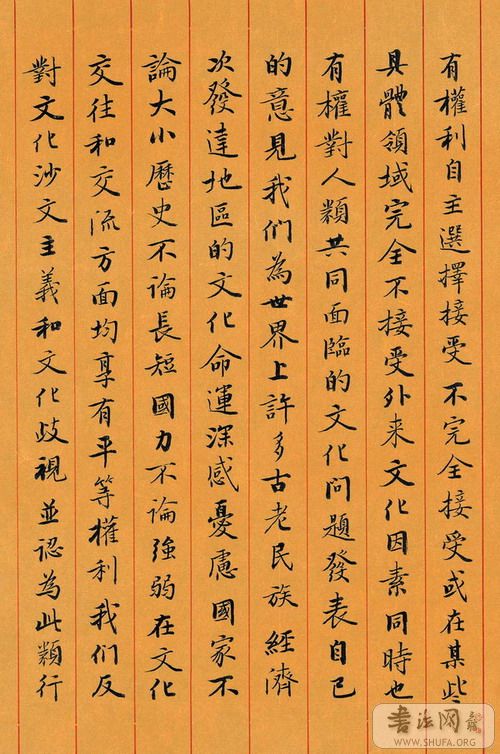 有權利自主選擇接受不完全接受或在某些
具體領域完全不接受外来文化因素同時也
有權對人類共同面臨的文化问題發表自己
的意見我们為世界上許多古老民族經濟
次發達地區的文化命運深感憂慮國家不
論大小歷史不論長短國力不論強弱在文化
交往和交流方面均享有平等權利我们反
對文化沙文主義和文化歧視並認為此類行
書法网
WWW.SHUFA.ORG